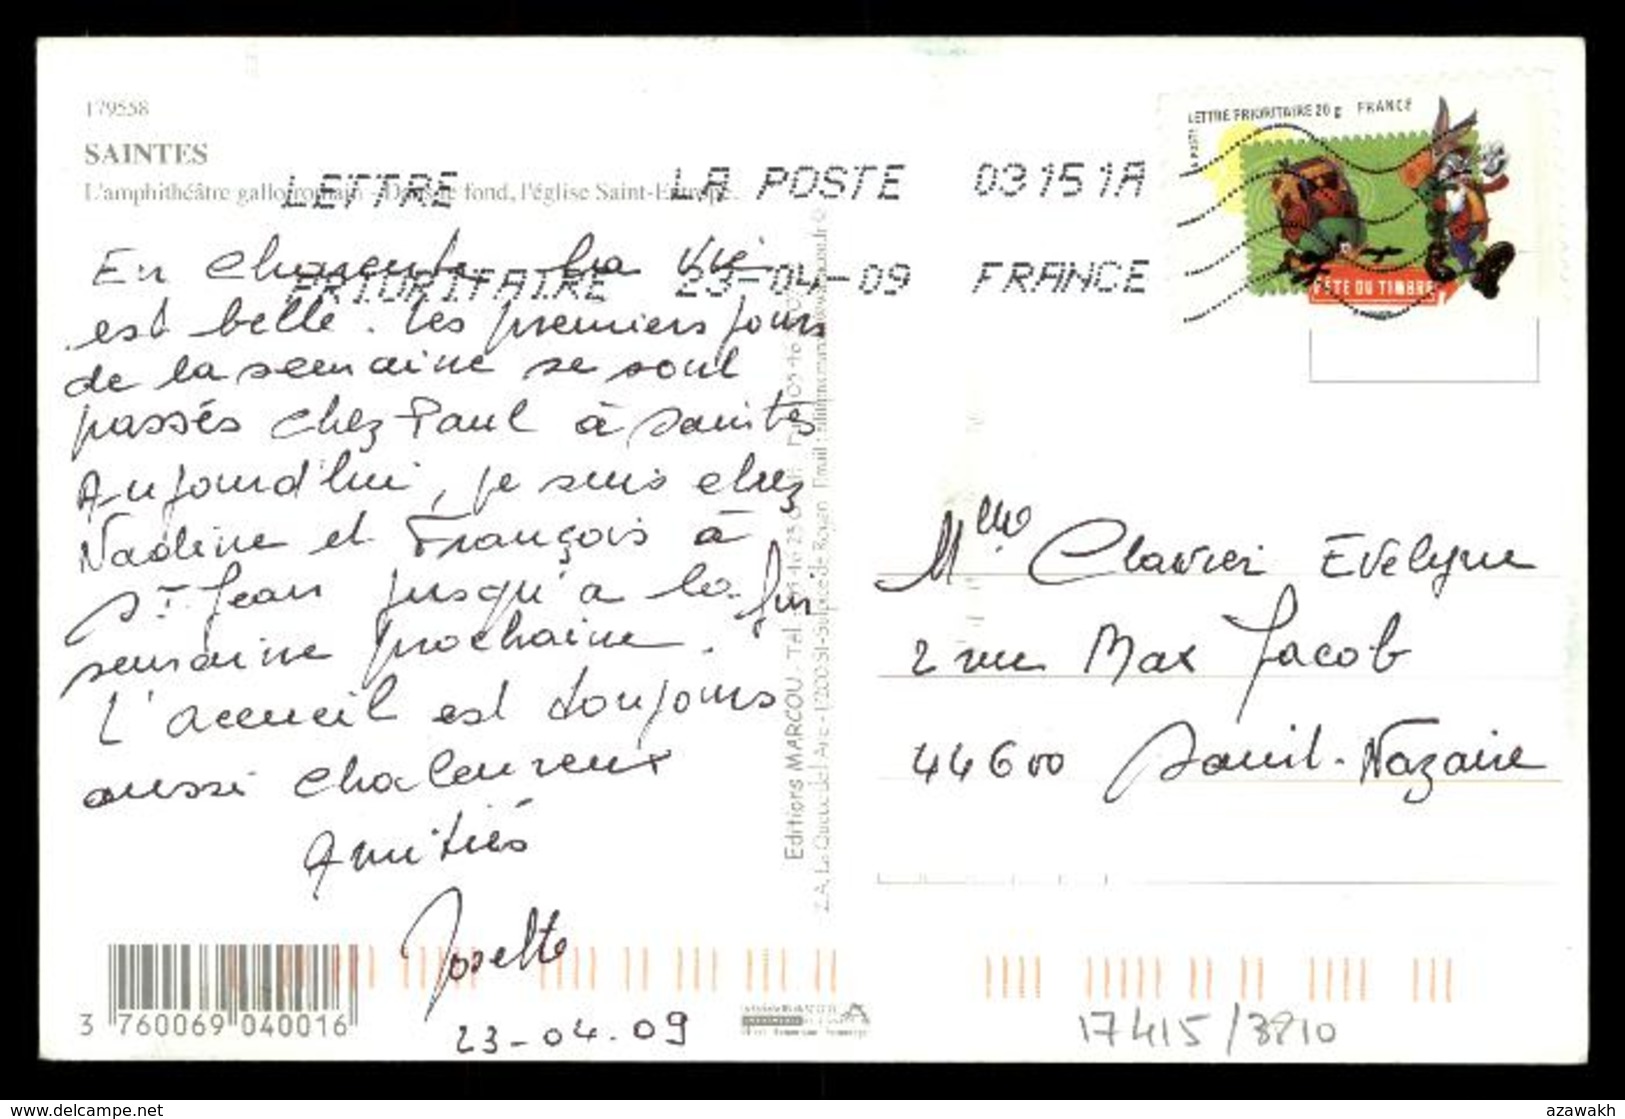 179558
SAINTES
L'amphithéâtre gallo-romain - Dans le fond, l'église Saint-Eutrope.
LETTRE LA POSTE 03151A
PRIORITAIRE 23-04-09 FRANCE
LETTRE PRIORITAIRE 20 g FRANCE
LA POSTE
FÊTE DU TIMBRE
En Charente la vie
est belle. Les premiers jours
de la semaine se sont
passés chez Paul à Saintes
Aujourd'hui, je suis chez
Nadine et François à
St Jean jusqu'à la fin
semaine prochaine.
L'accueil est toujours
aussi chaleureux
Amitiés
Josette
23-04.09
Editions MARCOU - Tél.
Z.A. La Queue de l'Ane - 17200 St-Sulpice de Royan Email :
Mme Clavier Evelyne
2 rue Max Jacob
44600 Saint-Nazaire
3 760069 040016
17415/3810
azawakh